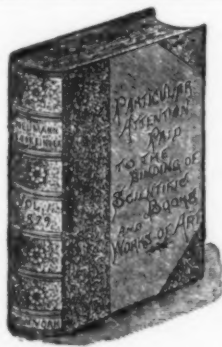 PARTICULAR
ATTENTION
PAID
TO THE
BINDING OF
SCIENTIFIC
BOOKS
AND
WORKS OF ART
NEUMANN
VOL.
1879
NEW YORK